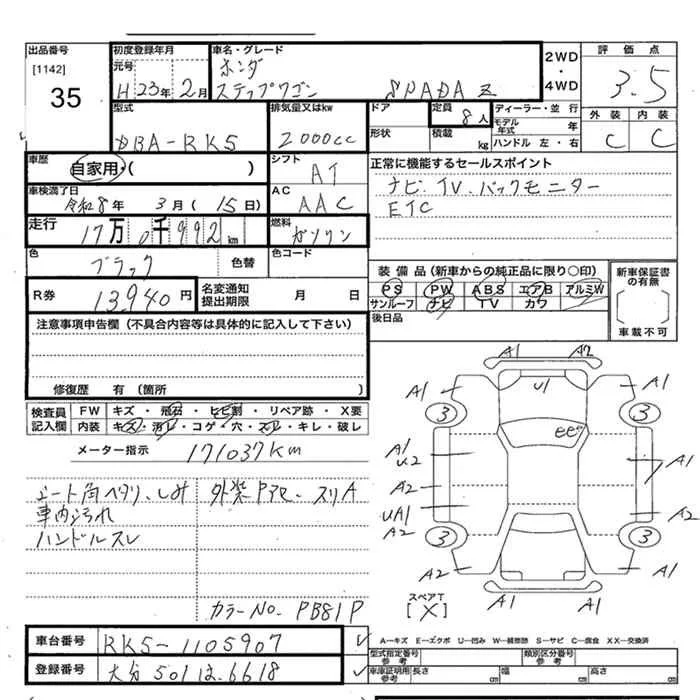 出品番号
[1142]
35
初度登録年月
元号
H 23年 2月
車名・グレード
ホンダ
ステップワゴン SPADA Z
2WD
・
4WD
評価点
3.5
外装 内装
C C
型式
DBA-RK5
排気量又はkw
2000cc
ドア
形状
定員
8人
積載
kg
ディーラー・並行
モデル年式 年
ハンドル 左・右
車歴
自家用・( )
シフト
AT
正常に機能するセールスポイント
ナビ.TV.バックモニター
ETC
車検満了日
令和8年 3月(15日)
AC
AAC
走行
17万0千992km
燃料
ガソリン
色
ブラック
色替
色コード
R券
13,940円
名変通知
提出期限
月 日
装備品(新車からの純正品に限り○印)
PS PW ABS エアB アルミW
サンルーフ ナビ TV カワ
後日品
新車保証書
の有無
車載不可
注意事項申告欄(不具合内容等は具体的に記入して下さい)
修復歴 有(箇所 )
検査員
記入欄
FW キズ・飛石・ヒビ割・リペア跡・X要
内装 キズ・汚レ・コゲ・穴・スレ・キレ・破レ
メーター指示 171037Km
シート角ヘタリ、しみ
車内汚れ
ハンドルスレ
外装Pアセ、スリA
カラーNo. PB81P
A1 A2
A1 U1 A1
3 3
A1
U2
A2
UA1
A2
A1
A2
3 3
A2 A1
A1
スペアT
[X]
車台番号 RK5-1105907
登録番号 大分 501 は.6618
A―キズ E―エクボ U―凹み W―補修跡 S―サビ C―腐食 XX―交換済
型式指定番号
参考
類別区分番号
参考
車庫証明用
参考
長さ cm
幅 cm
高さ cm